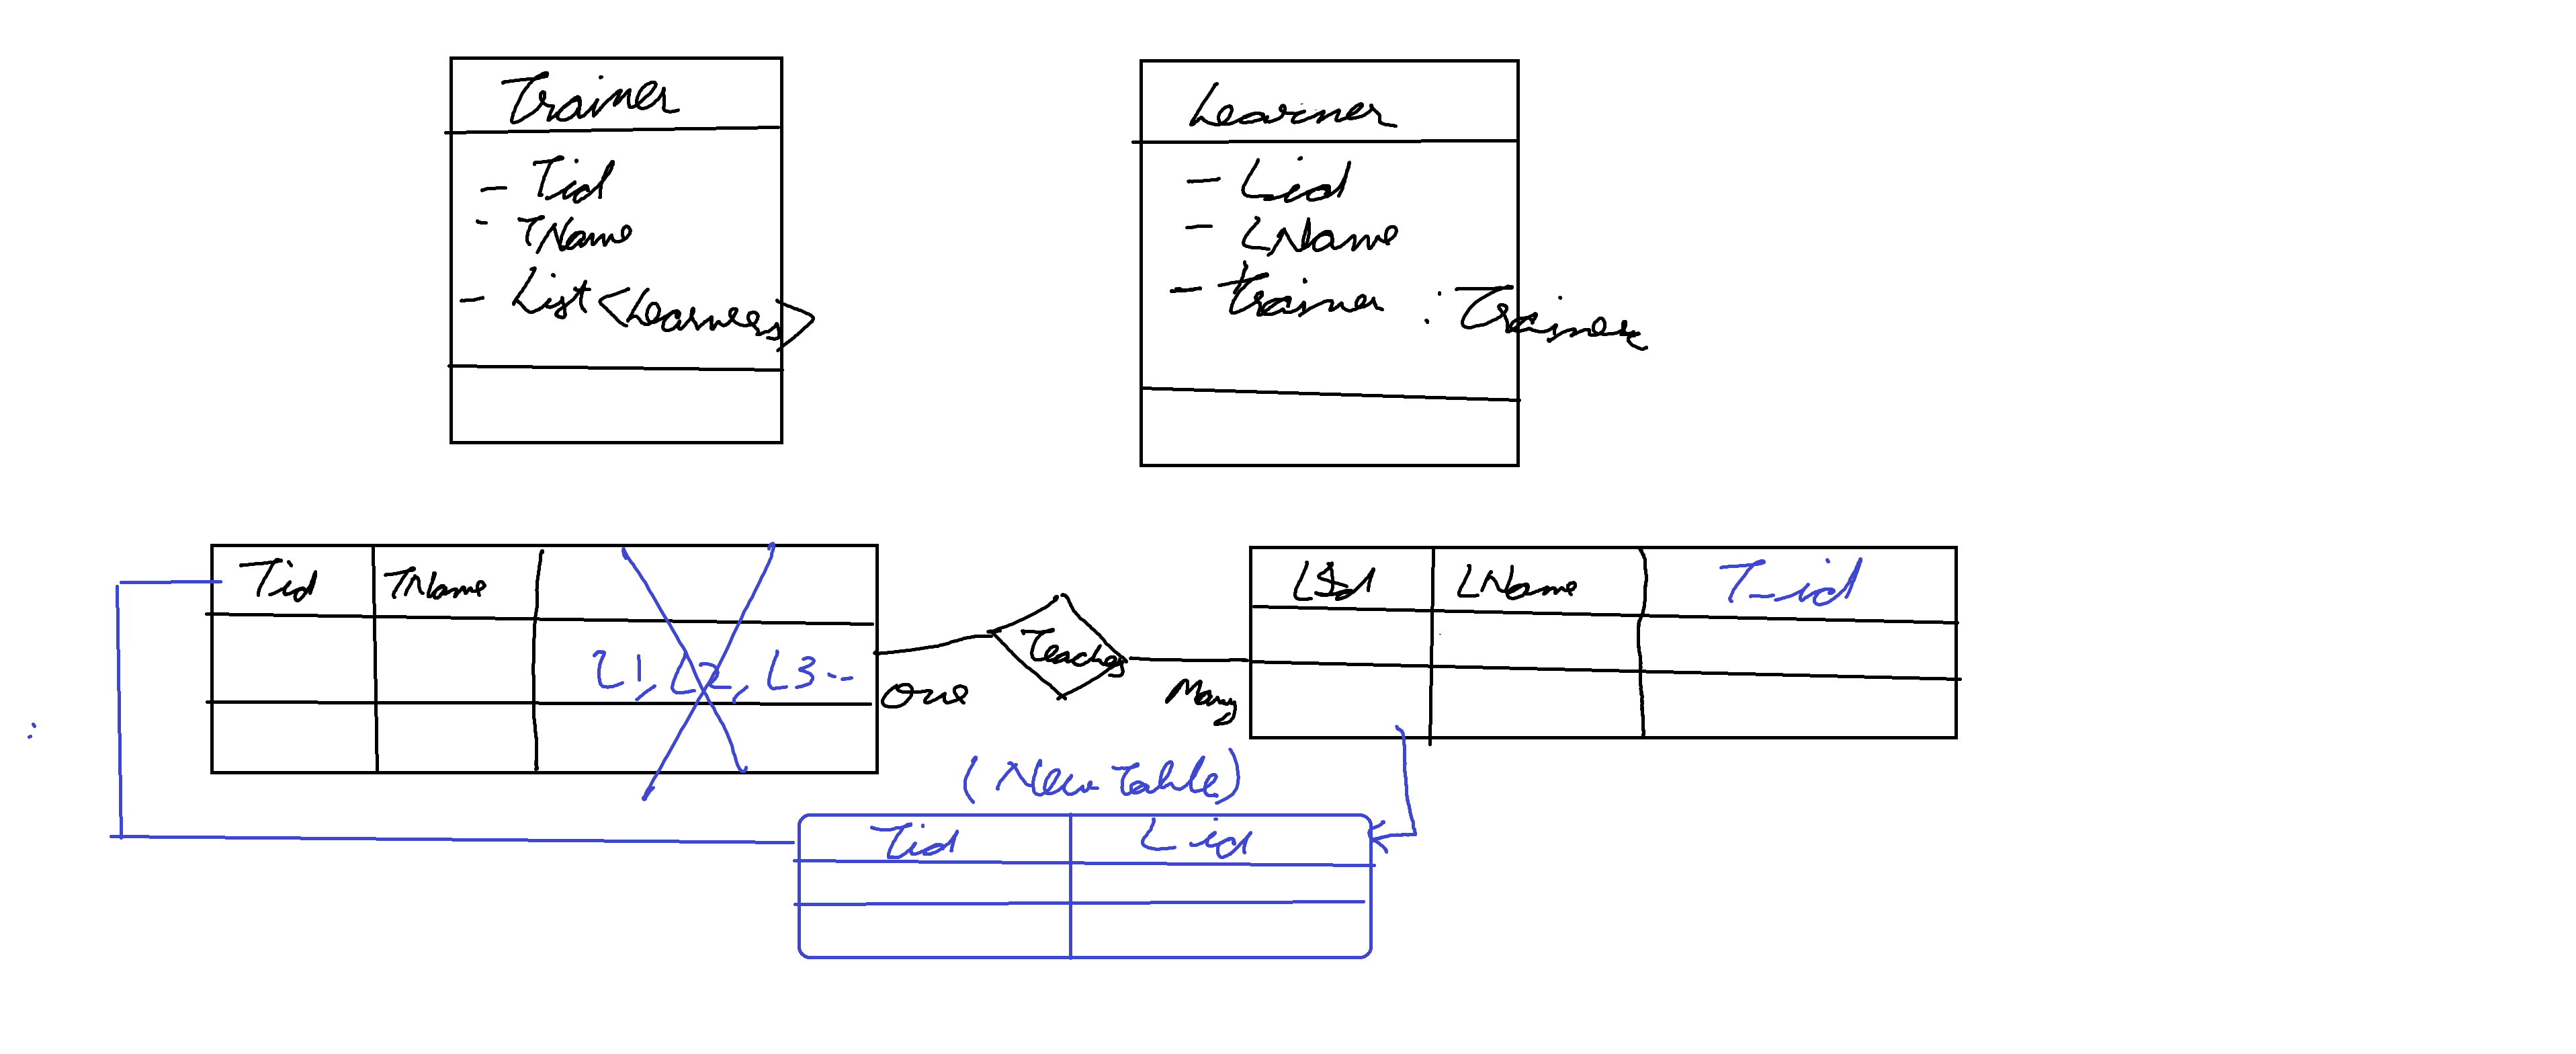 Trainer
- Tid
- TName
- List<Learners>
Learner
- Lid
- LName
- trainer : Trainer
Tid TName
L1, L2, L3--
One
Teaches
Many
Lid LName T_id
(New Table)
Tid Lid